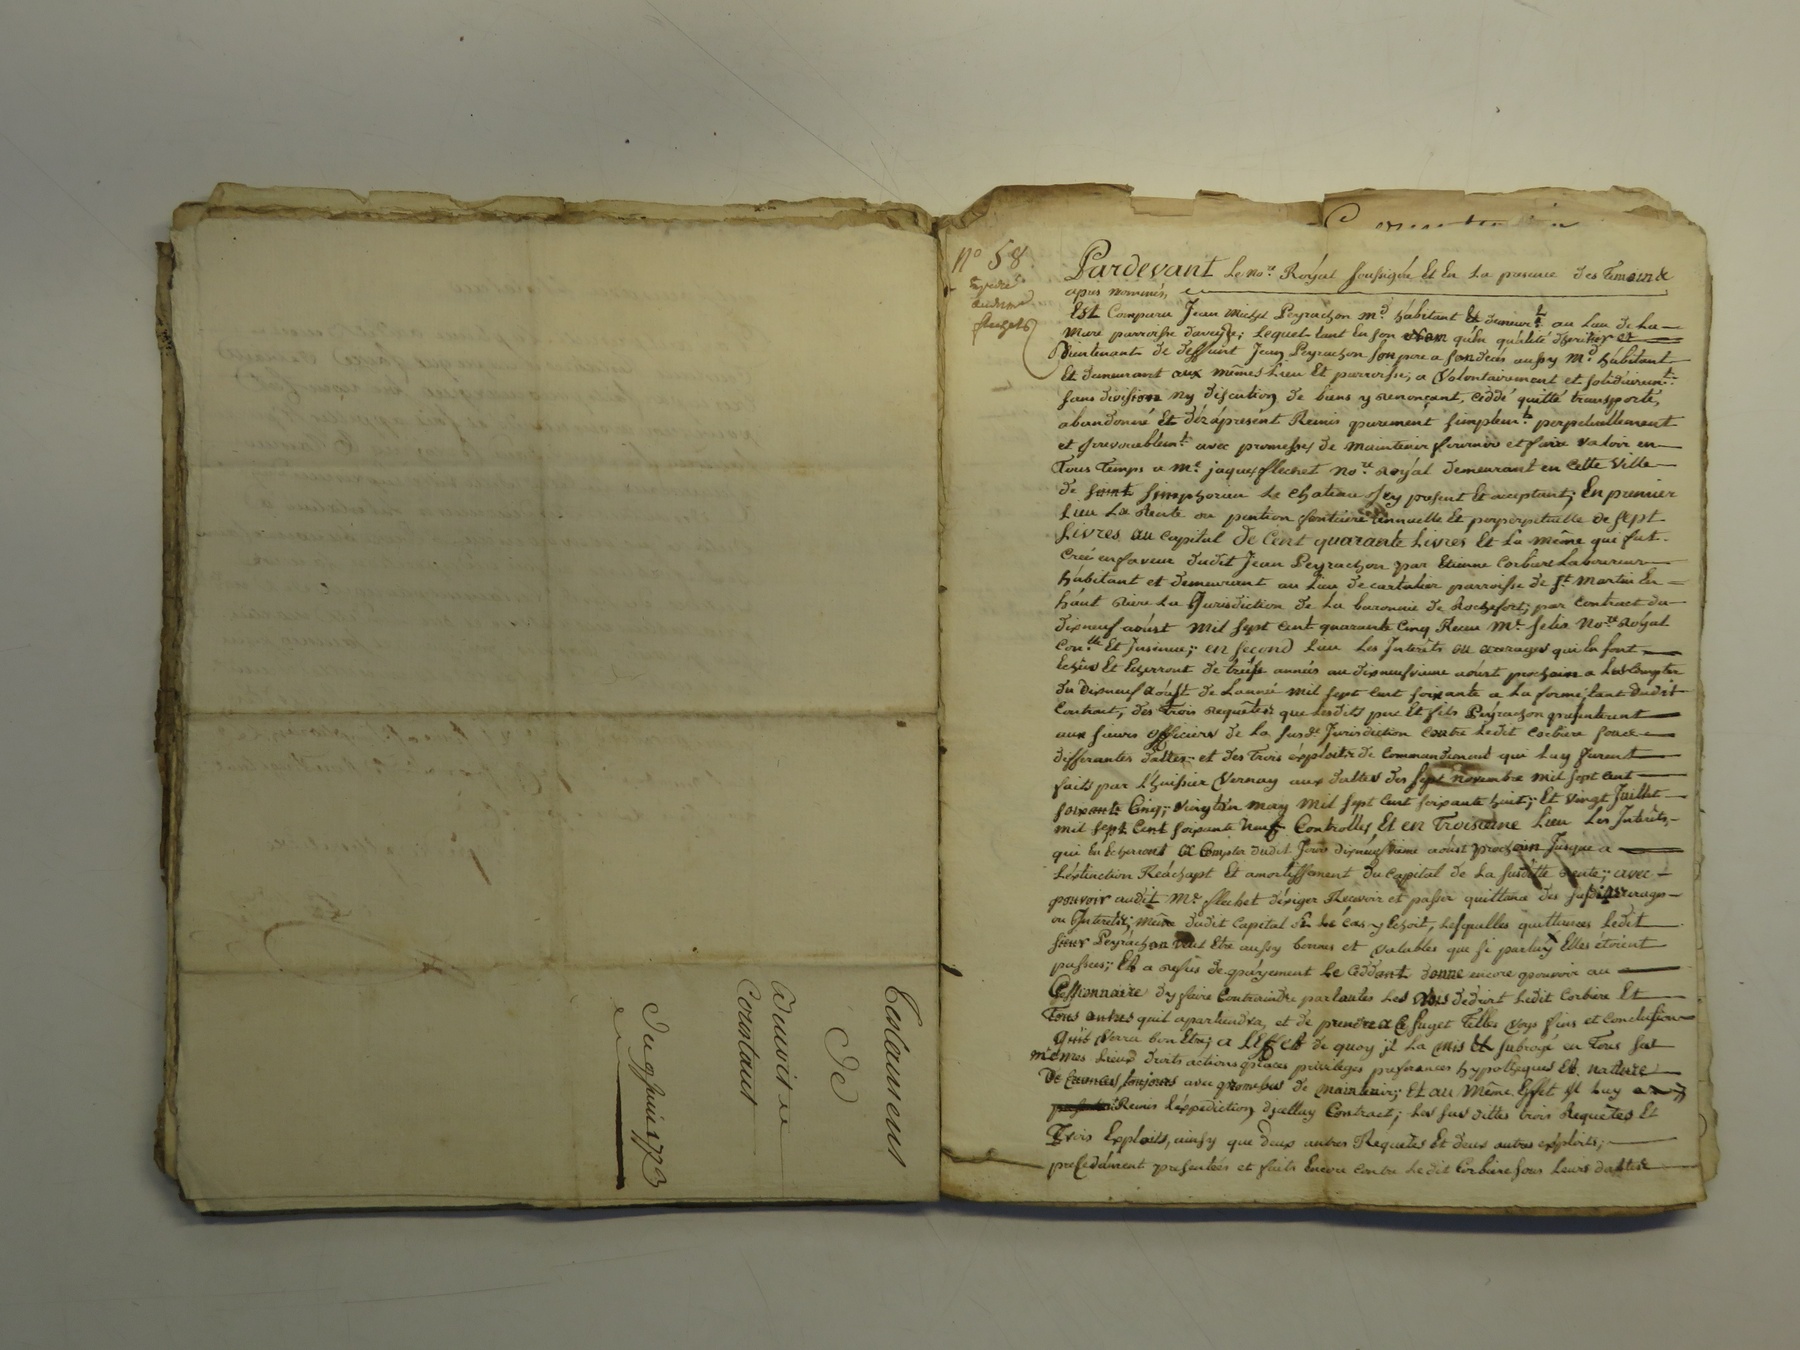 Testament
De
du 9 Juin 1773
N° 58
Pardevant Le no.re Royal soussigné Et En La presence des Temoins
apres nommés,
Est Comparu Jean Michel Peyrachon m.d habitant Et demeur.t au Lieu de La
Mure parroisse ; Lequel tant En son nom qu'en qualité d'heritier et
Dieutenant de deffunt Jean Peyrachon son pere a son deces aussy m.d habitant
Et demeurant aux mêmes Lieu Et parroisse, a Volontairement et solidairem.t
sans division ny discution de biens y renonçant, Ceddé quitté transporté,
abandonné Et déz àprésent Remis purement simplem.t perpetuellement
et irrevocablem.t avec promesses de maintenir fournir et faire valoir en
Tous Temps a M.e jaques flechet No.re Royal demeurant en Cette Ville
de saint simphorien Le Chateau Jcy present Et acceptant; En premier
Lieu La Rente ou pention fontciere annuelle Et perpetuelle de sept
Livres au Capital de Cent quarante Livres Et La même qui fut
Creé en faveur dudit Jean Peyrachon par Etienne Corbiere Laboureur
habitant et demeurant au Lieu de parroisse de S.t Martin En
haut Riere La Jurisdiction de La baronnie de Rochefort; par Contract du
dixneuf aoùst Mil sept Cent quarante Cinq Receu M.e No.re Royal
Con.llé Et Jnsinué; en second Lieu Les Jnterêts ou arrerages qui En sont
Echûs Et Echerront de treize années au dixneufvieme aoùst prochain a Les Compter
du Dixneuf Aoùst de Lannée Mil sept Cent soixante a La forme, tant dudit
Contrait, des trois requêtes que Lesdits pere Et fils Peyrachon presenterent
aux sieurs officiers de La susd.e Jurisdiction Contre Ledit Corbiere sous
differantes dattes; et des trois exploits de Commandement qui Luy furent
faits par L'huissier Vernay aux dattes des sept novembre mil sept Cent
soixante Cinq; vingt un may Mil sept Cent soixante huit; Et vingt Juillet
mil sept Cent soixante Neuf Controllés Et en Troisieme Lieu Les Jnterêts,
qui En Echerront a Compter dudit Jour dixneufvieme aoùst prochain Jusque a
L'extinction Réachapt Et amortissement du Capital de La susditte Rente; avec
pouvoir audit M.e flechet d'exiger Recevoir et passer quittance des susdits arrerages
ou Jnterêts; même dudit Capital si Le Cas y Echoit, Lesquelles quittances Ledit
sieur Peyrachon veut Etre aussy bonnes et valables que si par Luy Elles étoient
passées; Et a refus de payement Le Ceddant donne encore pouvoir au
Cessionnaire dy faire Contraindre par toutes Les Voies de droit Ledit Corbiere Et
Tous autres quil apartiendra, et de prendre a Ce suget Telles voyes fins et Conclusions
quil Verra bon Etre; a LEffet de quoy jl La mis Et subrogé en Tous ses
mêmes Lieux droits actions places privileges preferances hypotheques Et nature
De Creances, toujours avec promesses de maintenir; Et au Même Effet Jl Luy
Remis L'expedition dicelluy Contract; Les sus dittes trois Requetes Et
Trois Exploits, ainsy que deux autres Requetes Et deux autres exploits;
precedament presentées et faits Encore Contre Ledit Corbiere sous Leurs dattes